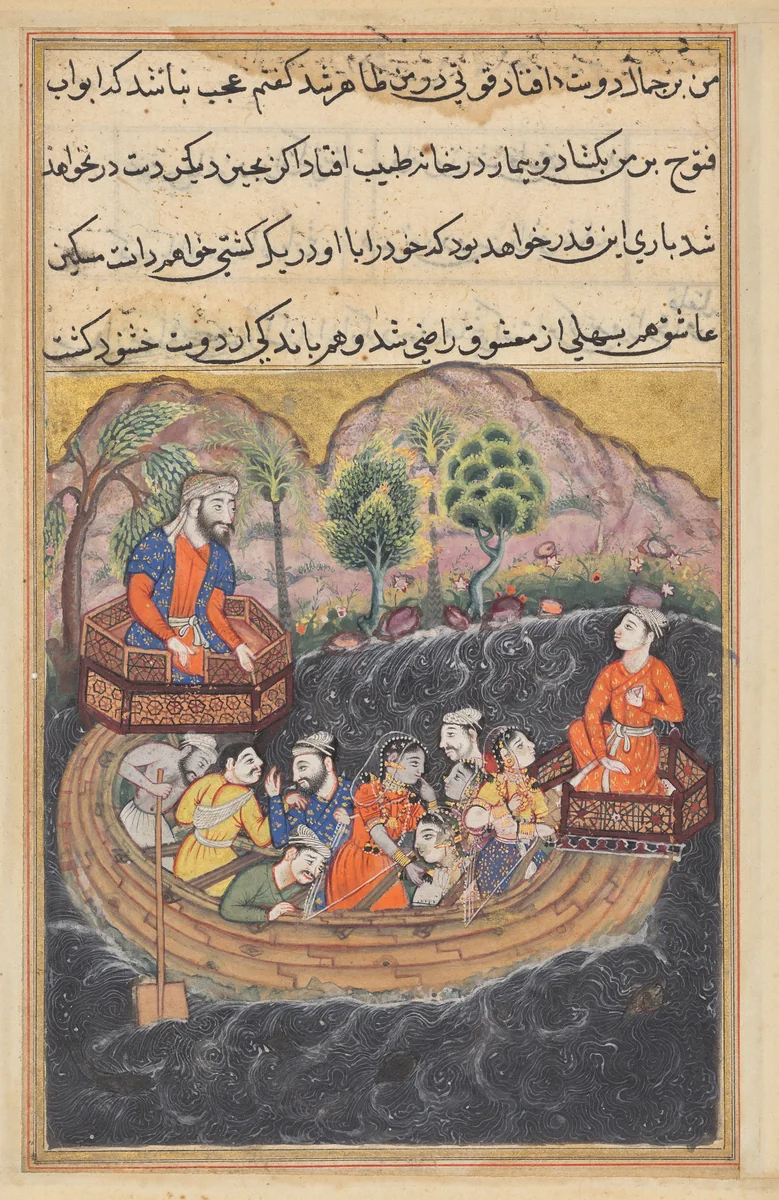 من بر جمال دوست افتاد قوتي در من ظاهر شد كفتم عجب نباشد كه ابواب
فتوح بر من بكشاد و بيمار در خانه طبيب افتاد اكر بجيزي ديكر دست در نخواهد
شد باري اين قدر خواهد بود كه خود را با او در يك كشتي خواهم دانست مسكين
عاشق هم بسهلي از معشوق راضي شد و هم باندكي از دوست خشنود كشت